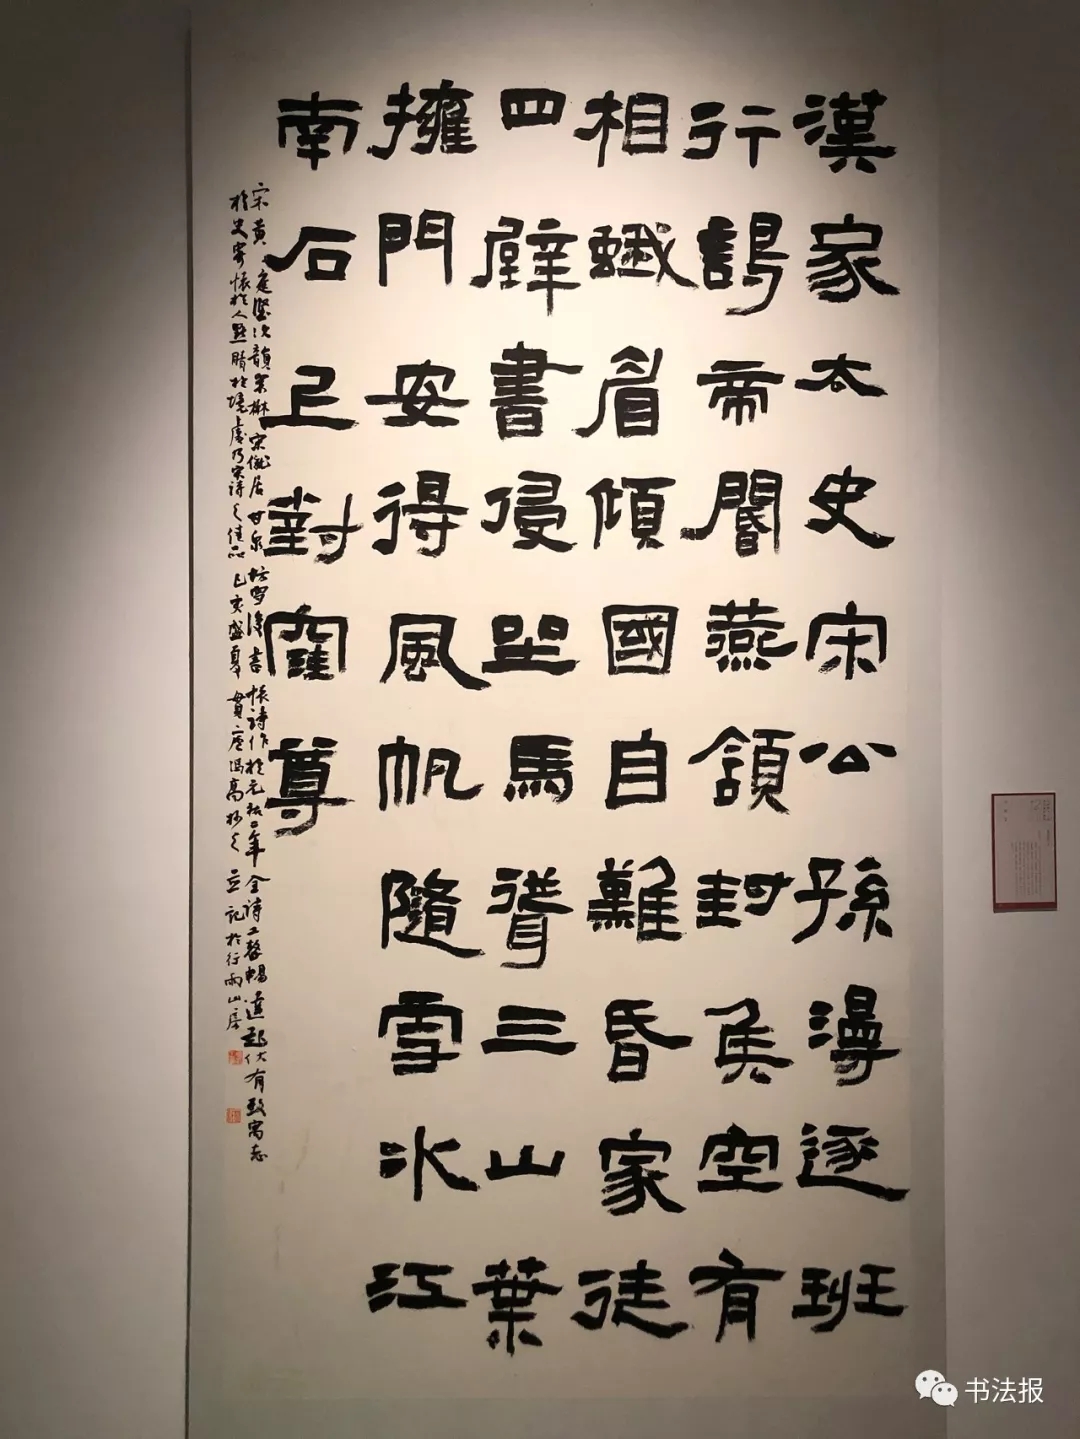 漢家太史宋公孫漫逐班
行謁帝閽燕頷封侯空有
相蛾眉傾國自難昏家徒
四壁書侵坐馬聳三山葉
擁門安得風帆隨雪水江
南石上對窪尊
宋黄庭堅次韻宋楙宗僦居甘泉坊雪後書懷詩作於元祐二年全詩工整暢達起伏有致寓志
於史寄懷於人點睛於境處乃宋詩之佳品己亥盛夏貫廬馮高記於行雨山房
书法报